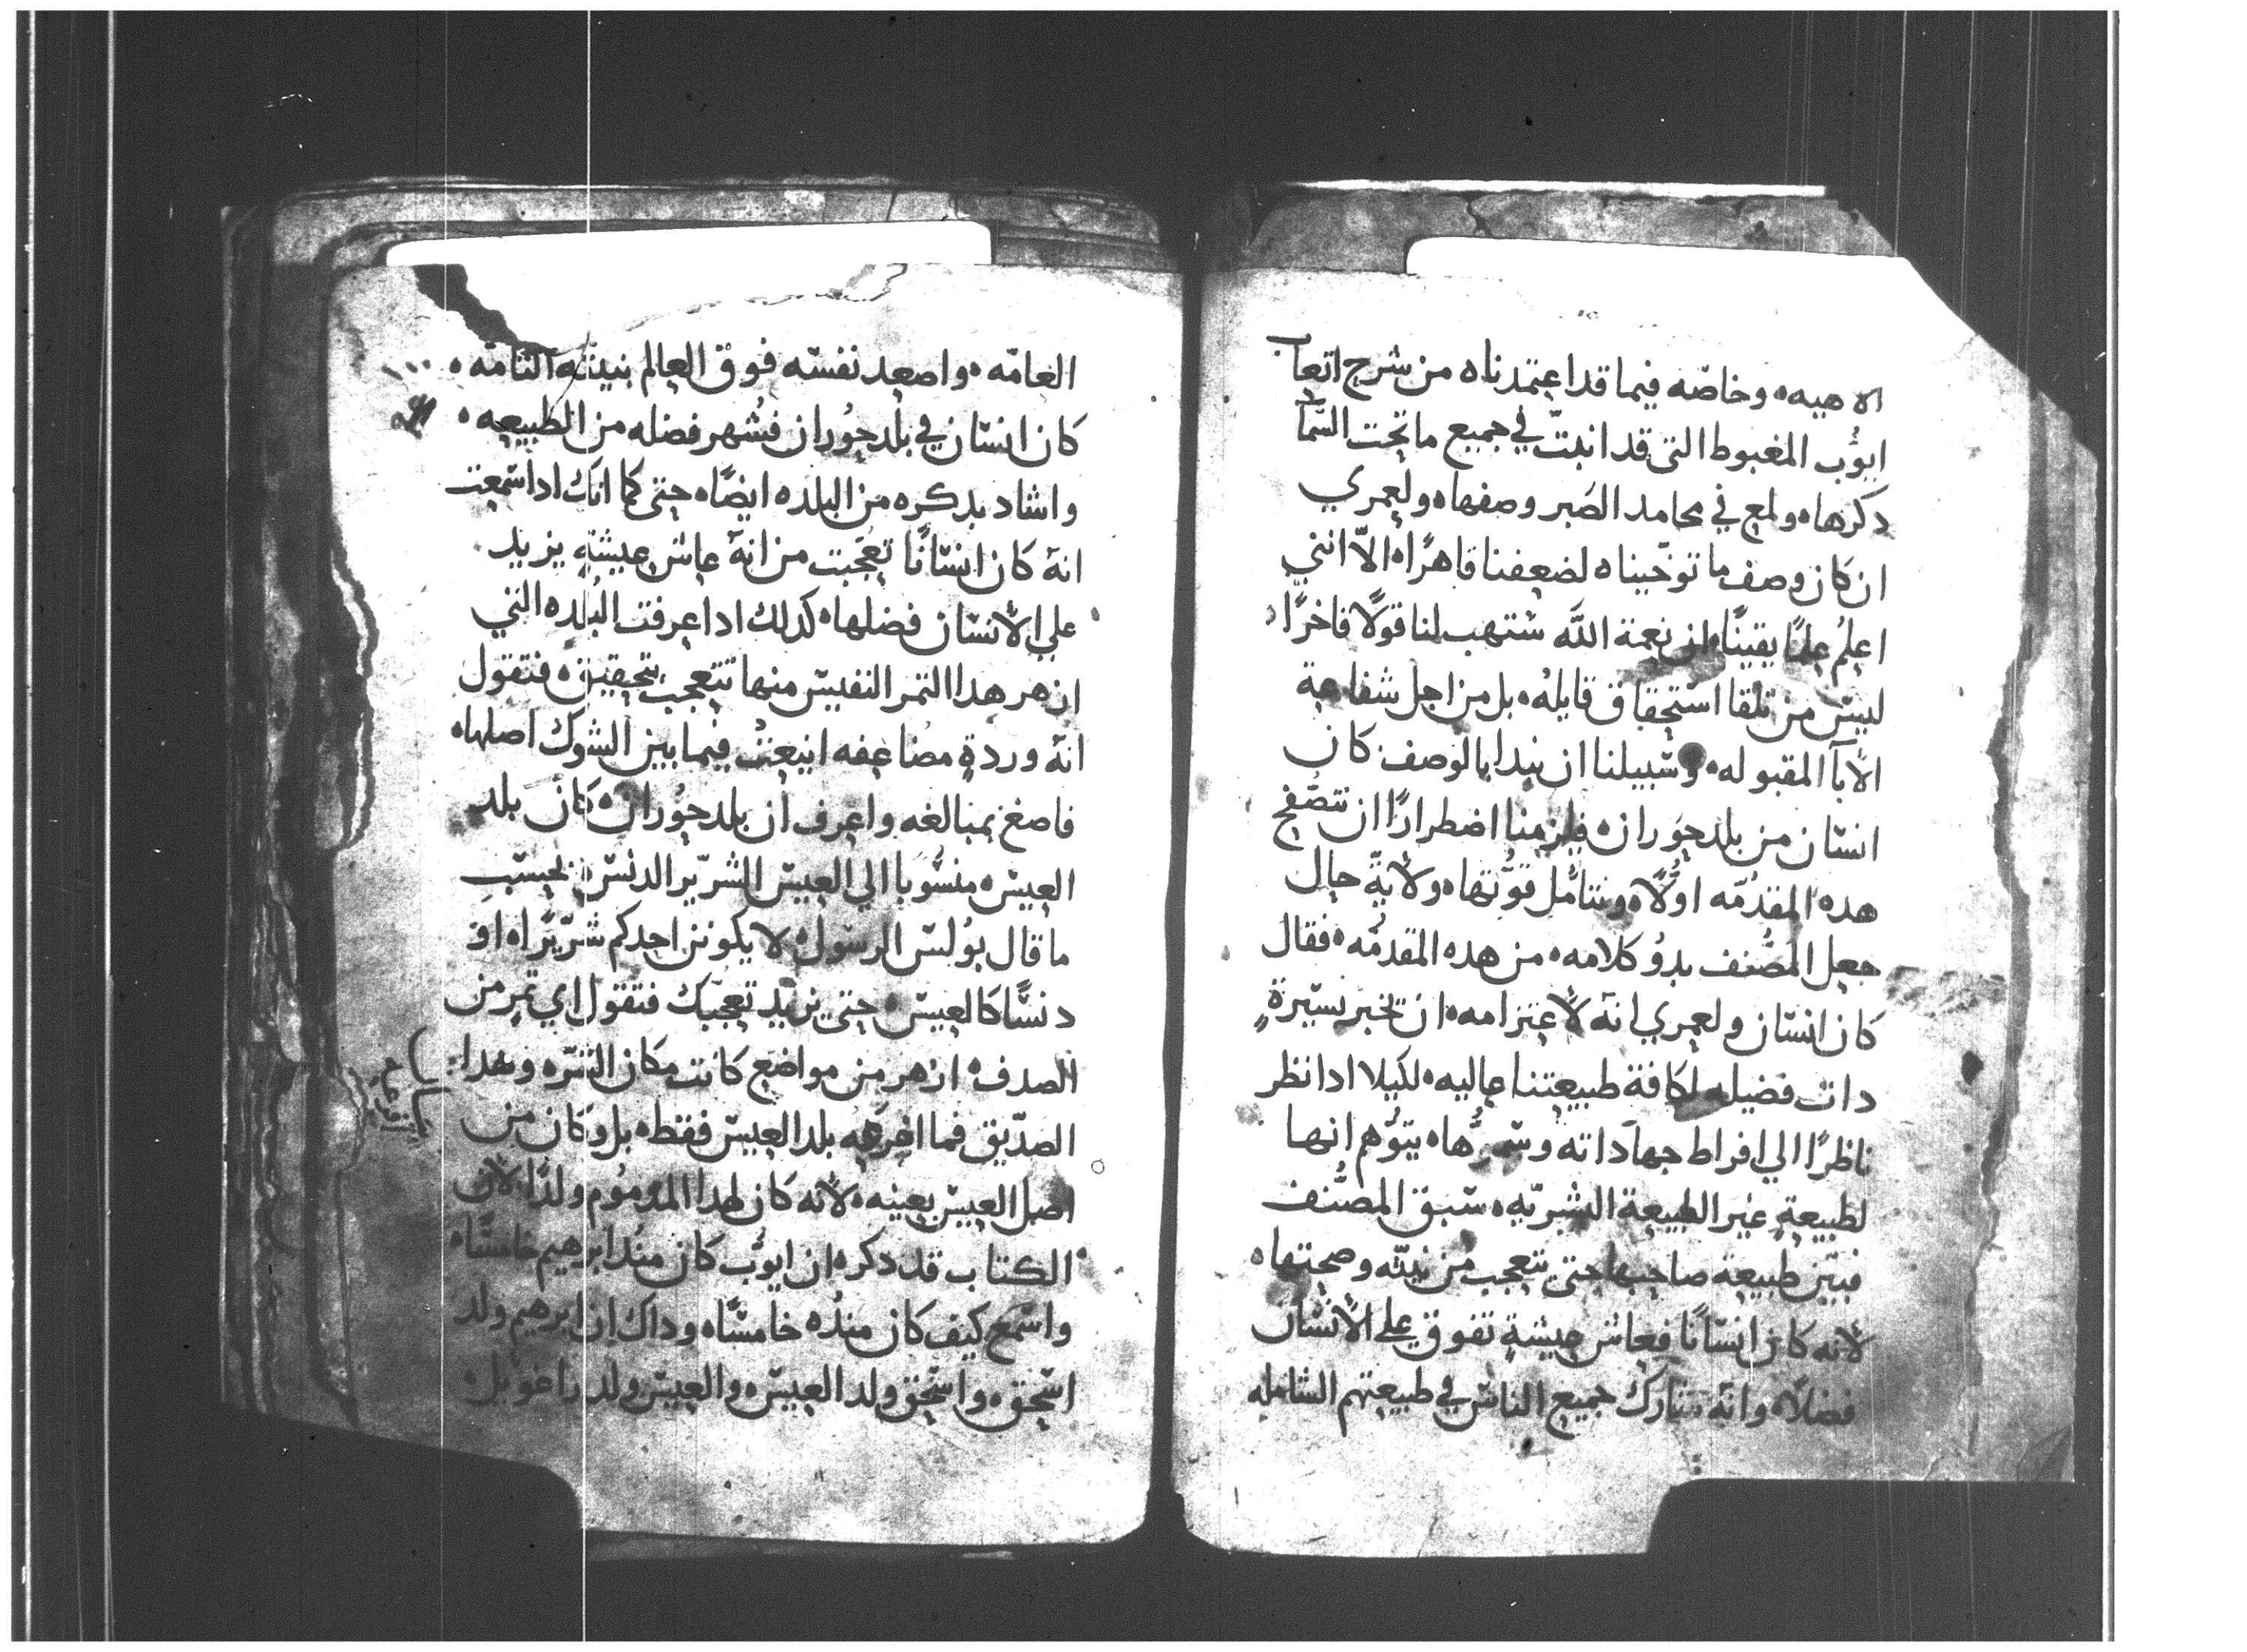 الاهيه ه وخاصّه فيما قد اعتمدناه من شرح اتعاب
ايوُب المغبوط التي قد انبتّ في جميع ما تحت السّما
دكرها ه ولمع في محامد الصَبر وصفها ه ولعمري
ان كان وصف ما توخّيناه لضعفنا قاهرًا ه الاّ انني
اعلمُ علمًا يقينًا ه ان نعمة اللّه ستهب لنا قولًا فاخرًا
ليس من تلقا استحقاق قايلهُ ه بل من اجل شفاعة
الابآ المقبوله ه وسّبيلنا ان نبدا بالوصف كان
انسّان من بلد حوَران ه فيلزمنا اضطرارًا ان نتصّفح
هده المقدّمه اولًا ه ونتامّل قوّتها ه ولايةّ حال
جعل المصُّنف بدوُ كلامه ه من هده المقدمّه ه فقال
كان انسّان ولعمري انهّ لاعتزامه ه ان تخبر بسّيرةٍ
دات فضيله لكافة طبيعتنا عاليه ه لكيلا ادا نظر
ناظرًا الي افراط جهاداته وسّموُّها ه يتوَّهم انها
لطبيعةٍ غير الطبيعة البشريّه ه سّبق المصُّنف
فبيّن طبيعة صاحبها حتي تتعجب من نيتّه وصحتها ه
لانه كان انسّانًا فعاش عيشةٍ تفوق علي الانسّان
فضلًا ه وانهّ تشارك جميع الناسّ في طبيعتهم الشامله
العامّه ه واصعد نفسّه فوق العالم بنيتّه التامّه ه
كان انسّان في بلد حوُران فشُهر فضله من الطبيعه ه
واشاد بدكره من البلده ايضًا ه حتي كما انك ادا سّمعت
انهّ كان انسّانًا تعجّبت من انهّ عاش عيشةٍ يزيد
علي الانسّان فضلها ه كدلك ادا عرفت البلده التي
ازهر هدا التمر النفيسّ منها تتعجب بتحقيق ه فتقول
انهّ وردةٍ مضاعفه اينعت فيما بين الشوك اصلها ه
فاصغ بمبالغه واعرف ان بلد حوُران ه كان بلد
العيسّ ه منسّوبا الي العيسّ الشرّير الدنسّ بحسّب
ما قال بوُلسّ الرسّول ه لا يكونن احدكم شرّيرًا ه او
دنسًّا كالعيسّ ه حتي يزيد تعجّبك فتقول اي تمرٍ من
الصدف ه ازهر من مواضع كانت مكان الشرّه وهدا
الصدّيق فما اخرجه بلد العيسّ فقط ه بل وكان من
اصل العيسّ بعينه ه لانه كان لهدا المدموُم ولدًا لان
الكتاب قد دكره ان ايوُّب كان منُد ابرهيم خامسًّا ه
واسّمع كيف كان مندُه خامسًّا ه وداك ان ابرهيم ولد
اسّحق ه واسّحق ولد العيسّ ه والعيسّ ولد راعوييل ه